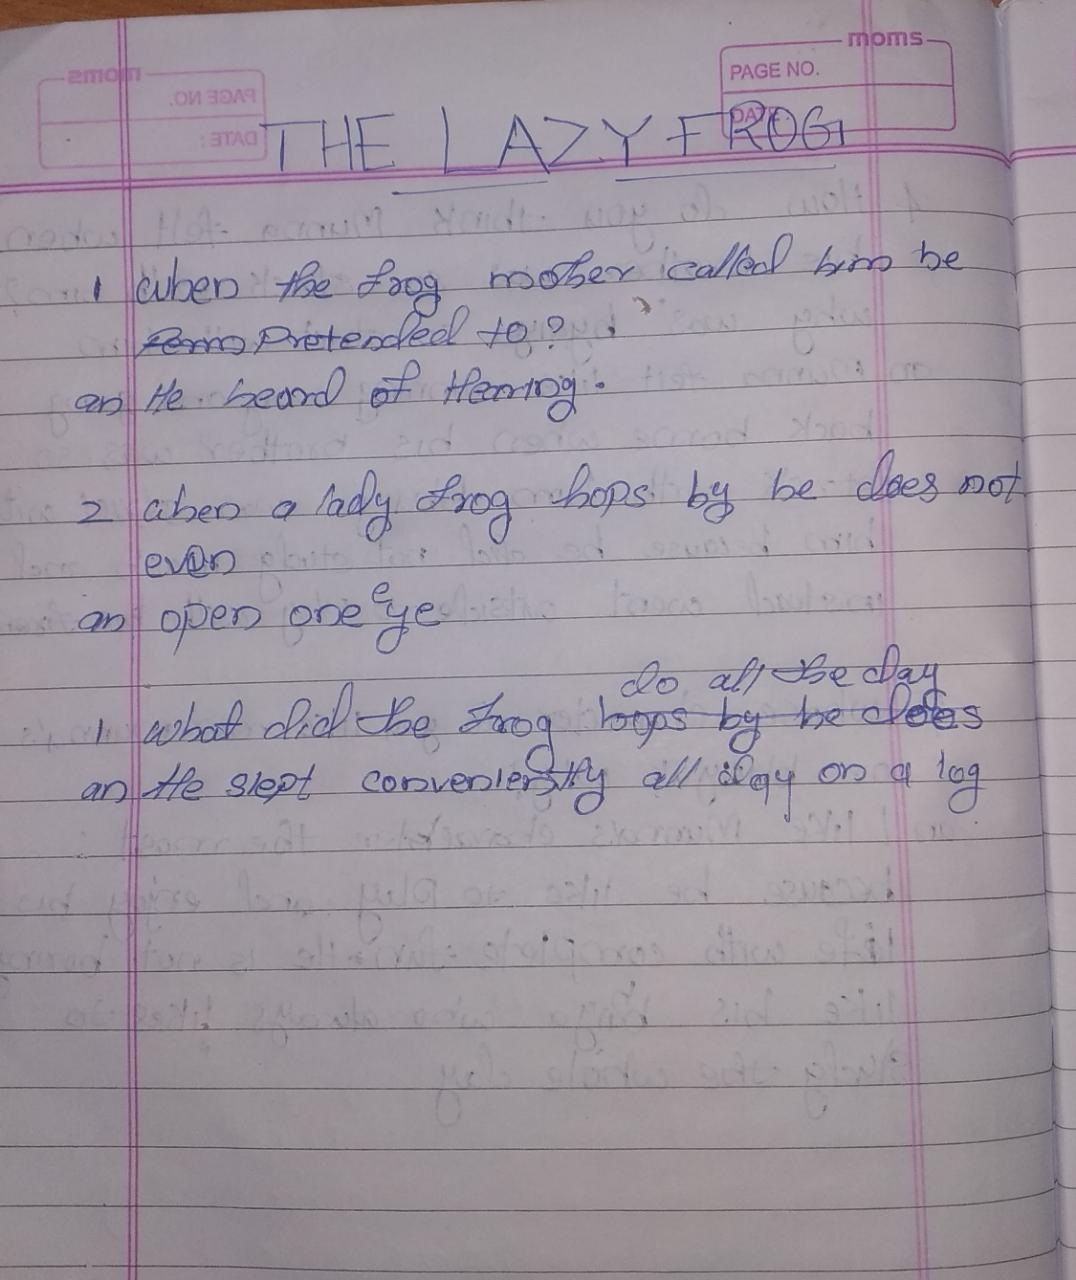 moms
PAGE NO.
DATE:
THE LAZY FROG
1 when the frog mother called him he
Pretended to?
an He heard of Hearing.
2 when a lady frog hops by he does not
even
an open one eye
do all the day
1 what did the frog hops by he does
an He slept conveniently all day on a log